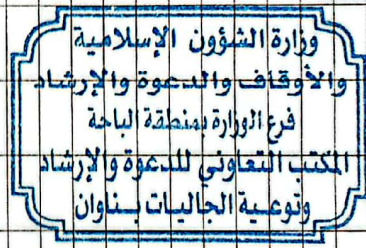 وزارة الشؤون الإسلامية
والأوقاف والدعوة والإرشاد
فرع الوزارة بمنطقة الباحة
المكتب التعاوني للدعوة والإرشاد
وتوعية الجاليات بناوان